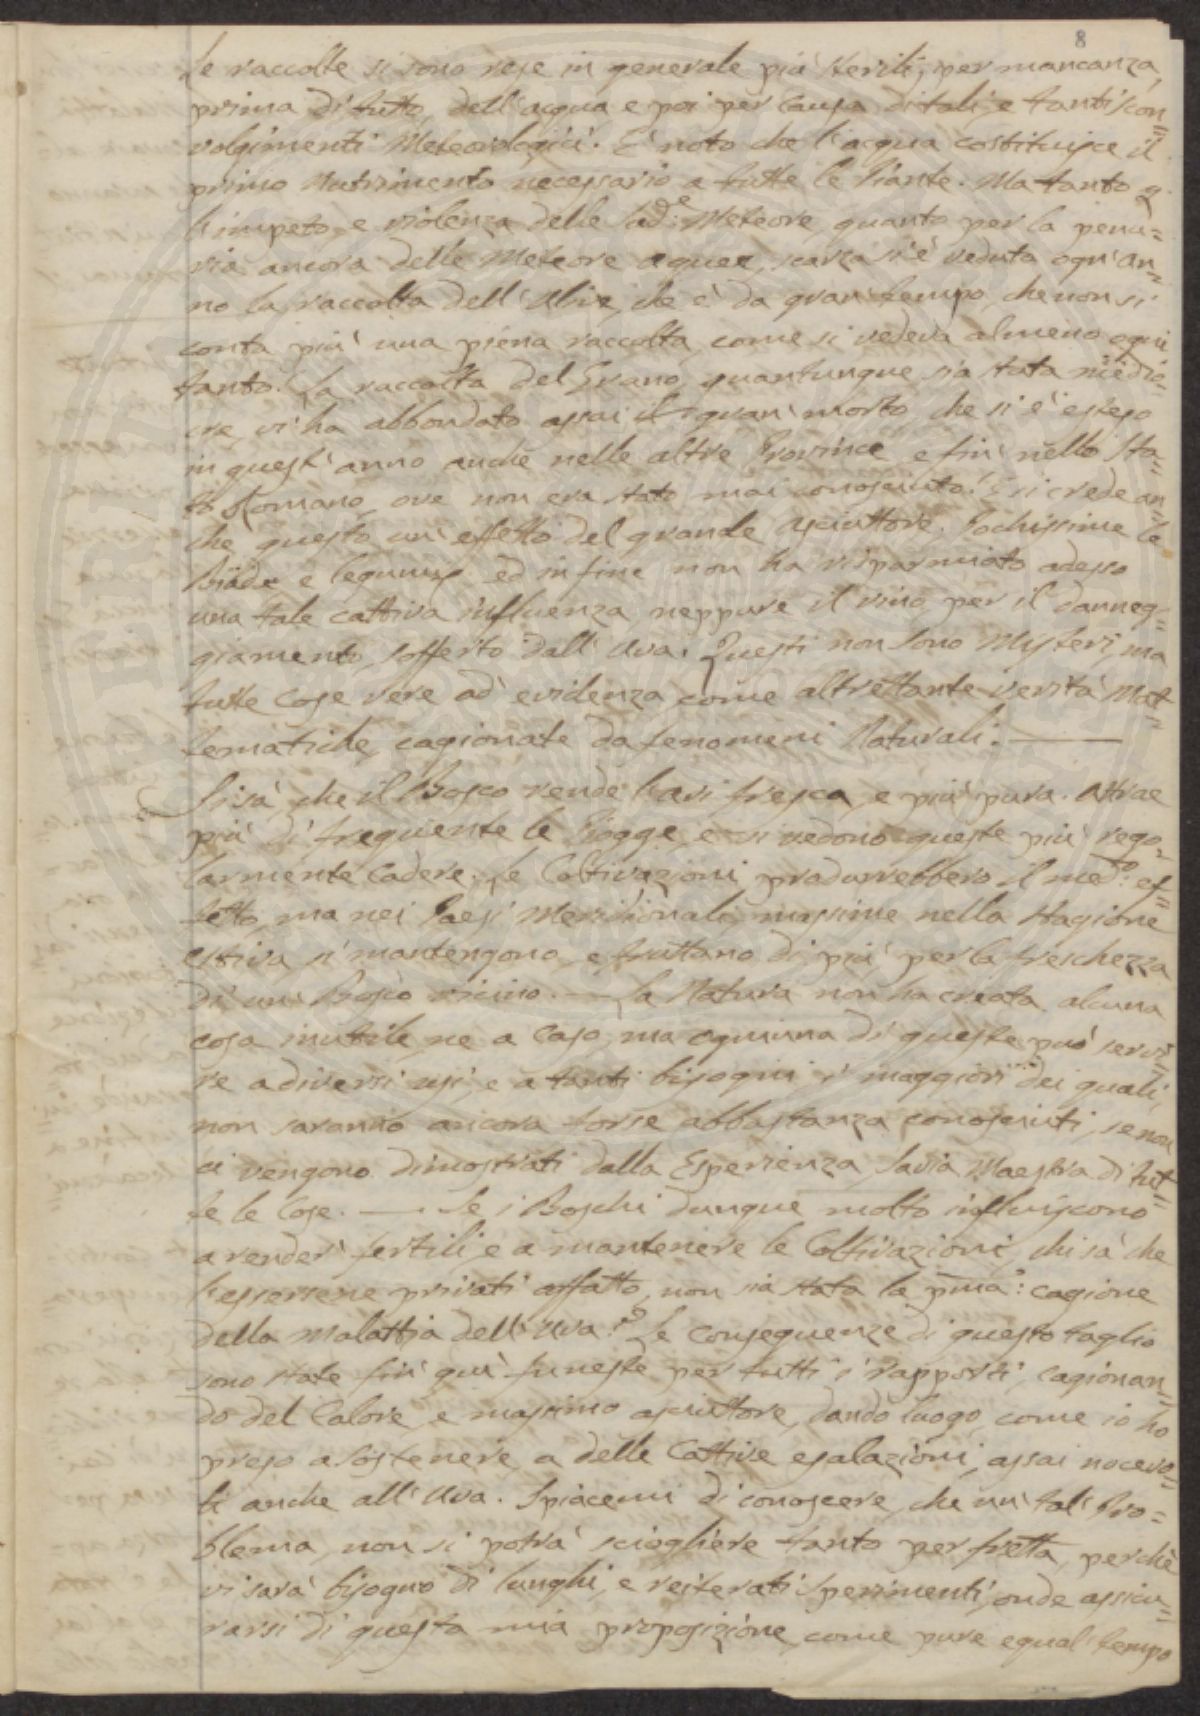 8
Le raccolte si sono rese in generale più sterili, per mancanza
prima di tutto, dell'acqua e poi per causa di tali, e tanti scon=
volgimenti Meteorologici. E' noto che l'acqua costituisce il
primo Nutrimento necessario a tutte le Piante. Ma tanto p.
l'impeto, e violenza delle sud.e Meteore, quanto per la penu=
ria ancora delle Meteore aquee, scarsa si è veduta ogn'an=
no la raccolta dell'Ulive, che è da gran tempo, che non si
conta più una piena raccolta, come si vedeva almeno ogni
tanto. La raccolta del Grano, quantunque sia stata medio=
cre, vi ha abbondato assai il gran' morto, che si è esteso
in quest'anno anche nelle altre Province, e fin nello Sta=
to Romano, ove non era stato mai conosciuto. E si crede an
che questo un'effetto del grande asciuttore. Pochissime le
Biade e legumi, ed in fine non ha risparmiato adesso
una tale cattiva influenza, neppure il vino, per il danneg=
giamento, sofferto dall'Uva. Questi non sono Mysteri, ma
tutte cose vere ad evidenza, come altrettante verità Mat=
tematiche, cagionate da fenomeni Naturali. —
Si sà, che il Bosco rende l'aria fresca, e più pura. Attrae
più di frequente le Piogge, e si vedono queste più rego=
larmente Cadere. Le Coltivazioni produrrebbero il med.o ef=
fetto, ma nei Paesi Meridionali, massime nella stagione
estiva, si mantengono, e fruttano di più, per la freschezza
di un' Bosco vicino. — La Natura non ha creata alcuna
cosa inutile, ne a Caso, ma ognuna di queste può servi=
re a diversi usi, e a tanti bisogni i maggiori dei quali,
non saranno ancora forse abbastanza conosciuti, se non
ci vengono dimostrati dalla Esperienza, Savia Maestra di tut=
te le Cose. — Se i Boschi dunque molto influiscono
a render' fertili, e a mantenere le Coltivazioni, chi sà che
l'essersene privati affatto, non sia stata la pma: cagione
della Malattia dell'Uva? Le conseguenze di questo taglio
sono state fin' qui funeste per tutti i rapporti, cagionan=
do del Calore, e massimo asciuttore, dando luogo, come io ho
preso a sostenere, a delle Cattive esalazioni, assai nocevo=
li anche all'Uva. Spiacemi di conoscere, che un' tal' Pro=
blema, non si potrà sciogliere tanto per fretta, perchè
vi sarà bisogno di lunghi, e reiterati sperimenti, onde assicu=
rarsi di questa mia proposizione, come pure egual' tempo